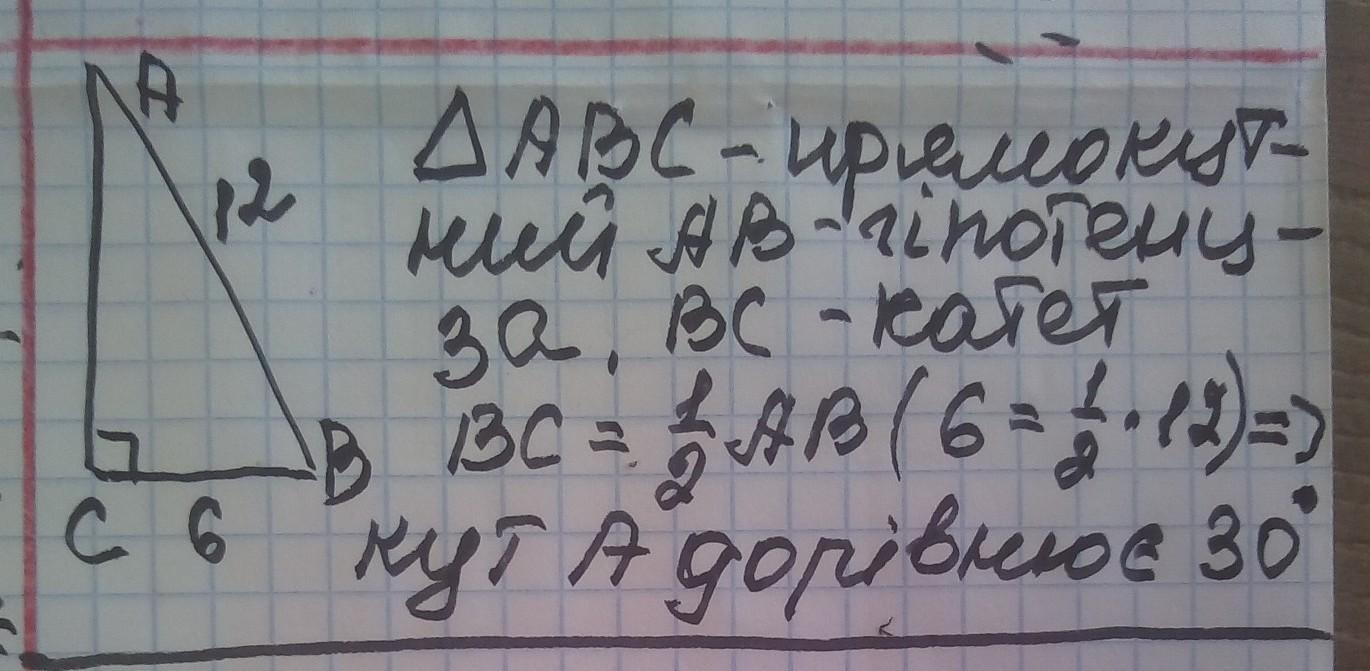 A
12
B
C 6
ΔABC - прямокут-
ний AB - гіпотену-
за, BC - катет
BC = 1/2 AB (6 = 1/2 · 12) =>
кут A дорівнює 30°